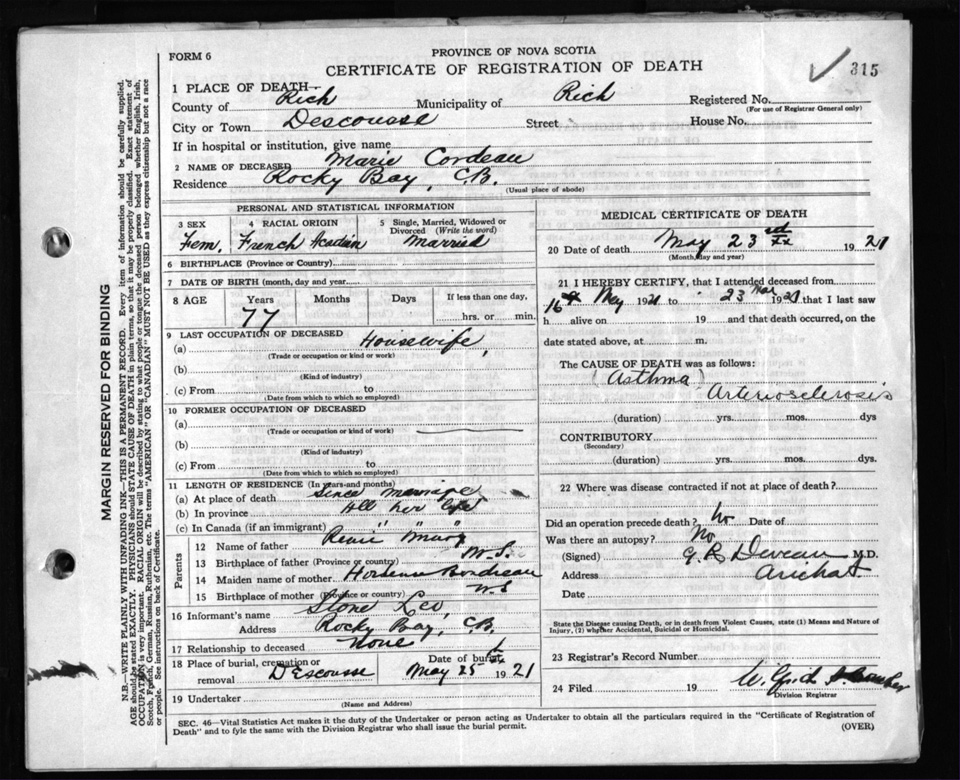 FORM 6
PROVINCE OF NOVA SCOTIA
CERTIFICATE OF REGISTRATION OF DEATH
315
1 PLACE OF DEATH—
County of Rich Municipality of Rich Registered No.
(For use of Registrar General only)
City or Town Descousse Street House No.
If in hospital or institution, give name
2 NAME OF DECEASED Marie Cordeau
Residence Rocky Bay, C.B.
(Usual place of abode)
PERSONAL AND STATISTICAL INFORMATION
3 SEX 4 RACIAL ORIGIN 5 Single, Married, Widowed or Divorced (Write the word)
Fem. French Acadian Married
6 BIRTHPLACE (Province or Country)
7 DATE OF BIRTH (month, day and year)
8 AGE Years Months Days If less than one day,
77 hrs. or min.
9 LAST OCCUPATION OF DECEASED
(a) Housewife,
(Trade or occupation or kind or work)
(b)
(Kind of industry)
(c) From to
(Date from which to which so employed)
10 FORMER OCCUPATION OF DECEASED
(a)
(Trade or occupation or kind of work)
(b)
(Kind of industry)
(c) From to
(Date from which to which so employed)
11 LENGTH OF RESIDENCE (In years and months)
(a) At place of death Since marriage
(b) In province All her life
(c) In Canada (if an immigrant) " "
Parents
12 Name of father
13 Birthplace of father (Province or country) N.S.
14 Maiden name of mother
15 Birthplace of mother (Province or country) N.S
16 Informant's name Stone Leo,
Address Rocky Bay, C.B.
17 Relationship to deceased None
18 Place of burial, cremation or removal DEscousse Date of burial May 25 1921
19 Undertaker
(Name and Address)
MEDICAL CERTIFICATE OF DEATH
20 Date of death May 23rd 1921
(Month, day and year)
21 I HEREBY CERTIFY, that I attended deceased from
16 May 1921 to 23 1921 that I last saw
h alive on 19 and that death occurred, on
date stated above, at m.
The CAUSE OF DEATH was as follows:
(Asthma)
Arteriosclerosis
(duration) yrs. mos. dys
CONTRIBUTORY
(Secondary)
(duration) yrs. mos. dys.
22 Where was disease contracted if not at place of death?
Did an operation precede death? No Date of
Was there an autopsy? No
(Signed) G R Deveau M.D.
Address Arichat
Date
State the Disease causing Death, or in death from Violent Causes, state (1) Means and Nature of
Injury, (2) whether Accidental, Suicidal or Homicidal.
23 Registrar's Record Number
24 Filed 19
Division Registrar
SEC. 46—Vital Statistics Act makes it the duty of the Undertaker or person acting as Undertaker to obtain all the particulars required in the "Certificate of Registration of
Death" and to fyle the same with the Division Registrar who shall issue the burial permit.
(OVER)
MARGIN RESERVED FOR BINDING
N.B.—WRITE PLAINLY WITH UNFADING INK—THIS IS A PERMANENT RECORD. Every item of information should be carefully supplied.
AGE should be stated EXACTLY. PHYSICIANS should STATE CAUSE OF DEATH in plain terms, so that it may be properly classified. Exact statement of
OCCUPATION is very important. RACIAL ORIGIN will be described by stating to what people or tongue the deceased person belonged whether English, Irish,
Scotch, French, German, Russian, Ruthenian, etc. The terms "AMERICAN" or "CANADIAN" MUST NOT BE USED as they express citizenship but not a race
or people. See instructions on back of Certificate.